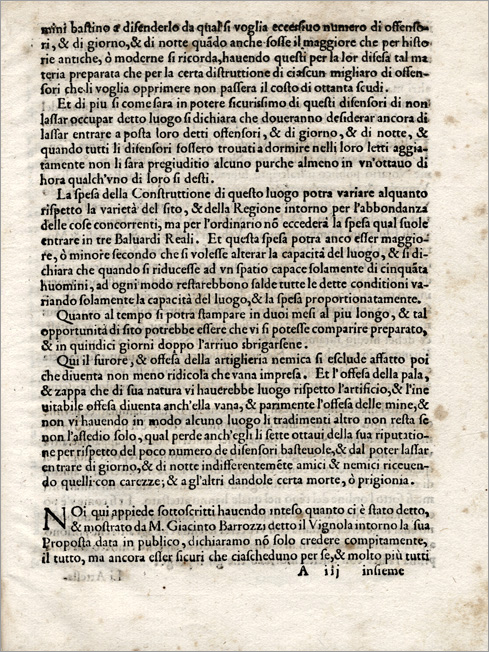 mini bastino a difenderlo da qual si voglia eccessiuo numero di offenso-
ri, & di giorno, & di notte quãdo anche fosse il maggiore che per histo
rie antiche, ò moderne si ricorda, hauendo questi per la lor difesa tal ma
teria preparata che per la certa distruttione di ciascun migliaro di offen-
sori che li voglia opprimere non passera il costo di ottanta scudi.
Et di piu si come sara in potere sicurissimo di questi difensori di non
lassar occupar detto luogo si dichiara che doueranno desiderar ancora di
lassar entrare a posta loro detti offensori, & di giorno, & di notte, &
quando tutti li difensori fossero trouati a dormire nelli loro letti aggia-
tamente non li sara pregiuditio alcuno purche almeno in vn'ottauo di
hora qualch'vno di loro si desti.
La spesa della Construttione di questo luogo potra variare alquanto
rispetto la varietà del sito, & della Regione intorno per l'abbondanza
delle cose concorrenti, ma per l'ordinario nõ eccederà la spesa qual suole
entrare in tre Baluardi Reali. Et questa spesa potra anco esser maggio-
re, ò minore secondo che si volesse alterar la capacità del luogo, & si di-
chiara che quando si riducesse ad vn spatio capace solamente di cinquãta
huomini, ad ogni modo restarebbono salde tutte le dette conditioni va-
riando solamente la capacità del luogo, & la spesa proportionatamente.
Quanto al tempo si potra stampare in duoi mesi al piu longo, & tal
opportunità di sito potrebbe essere che vi si potesse comparire preparato,
& in quindici giorni doppo l'arriuo sbrigarsene.
Qui il furore, & offesa della artiglieria nemica si esclude affatto poi
che diuenta non meno ridicola che vana impresa. Et l'offesa della pala,
& zappa che di sua natura vi hauerebbe luogo rispetto l'artificio, & l'ine
uitabile offesa diuenta anch'ella vana, & parimente l'offesa delle mine, &
non vi hauendo in modo alcuno luogo li tradimenti altro non resta se
non l'assedio solo, qual perde anch'egli li sette ottaui della sua riputatio-
ne per rispetto del poco numero de difensori basteuole, & dal poter lassar
entrare di giorno, & di notte indifferentemẽte amici & nemici riceuen-
do quelli con carezze; & a gl'altri dandole certa morte, ò prigionia.
NOi qui appiede sottoscritti hauendo inteso quanto ci è stato detto,
& mostrato da M. Giacinto Barrozzi detto il Vignola intorno la sua
Proposta data in publico, dichiaramo nõ solo credere compitamente,
il tutto, ma ancora esser sicuri che ciascheduno per se, & molto più tutti
A iij insieme